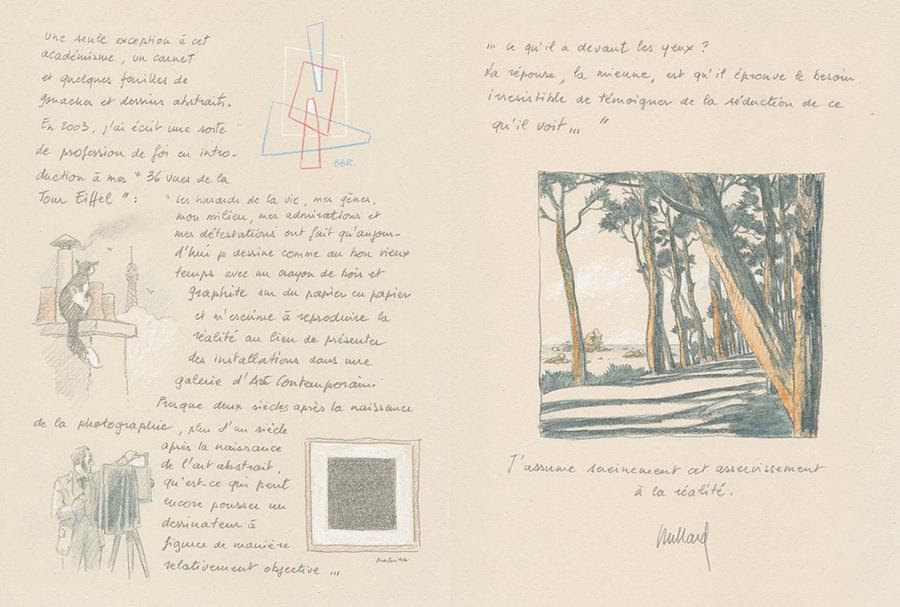 une seule exception à cet
académisme, un carnet
et quelques feuilles de
gouaches et dessins abstraits.
En 2003, j'ai écrit une sorte
de profession de foi en intro-
duction à mes " 36 vues de la
Tour Eiffel " :
" Les hasards de la vie, mes gènes,
mon milieu, mes admirations et
mes détestations ont fait qu'aujour-
d'hui je dessine comme au bon vieux
temps avec un crayon de bois et
graphite sur du papier en papier
et m'escrime à reproduire la
réalité au lieu de présenter
des installations dans une
galerie d'Art Contemporain.
Presque deux siècles après la naissance
de la photographie, plus d'un siècle
après la naissance
de l'art abstrait,
qu'est-ce qui peut
encore pousser un
dessinateur à
figurer de manière
relativement objective ...
BBR.
Malevitch
... ce qu'il a devant les yeux ?
La réponse, la mienne, est qu'il éprouve le besoin
irrésistible de témoigner de la séduction de ce
qu'il voit ... "
J'assume sereinement cet asservissement
à la réalité.